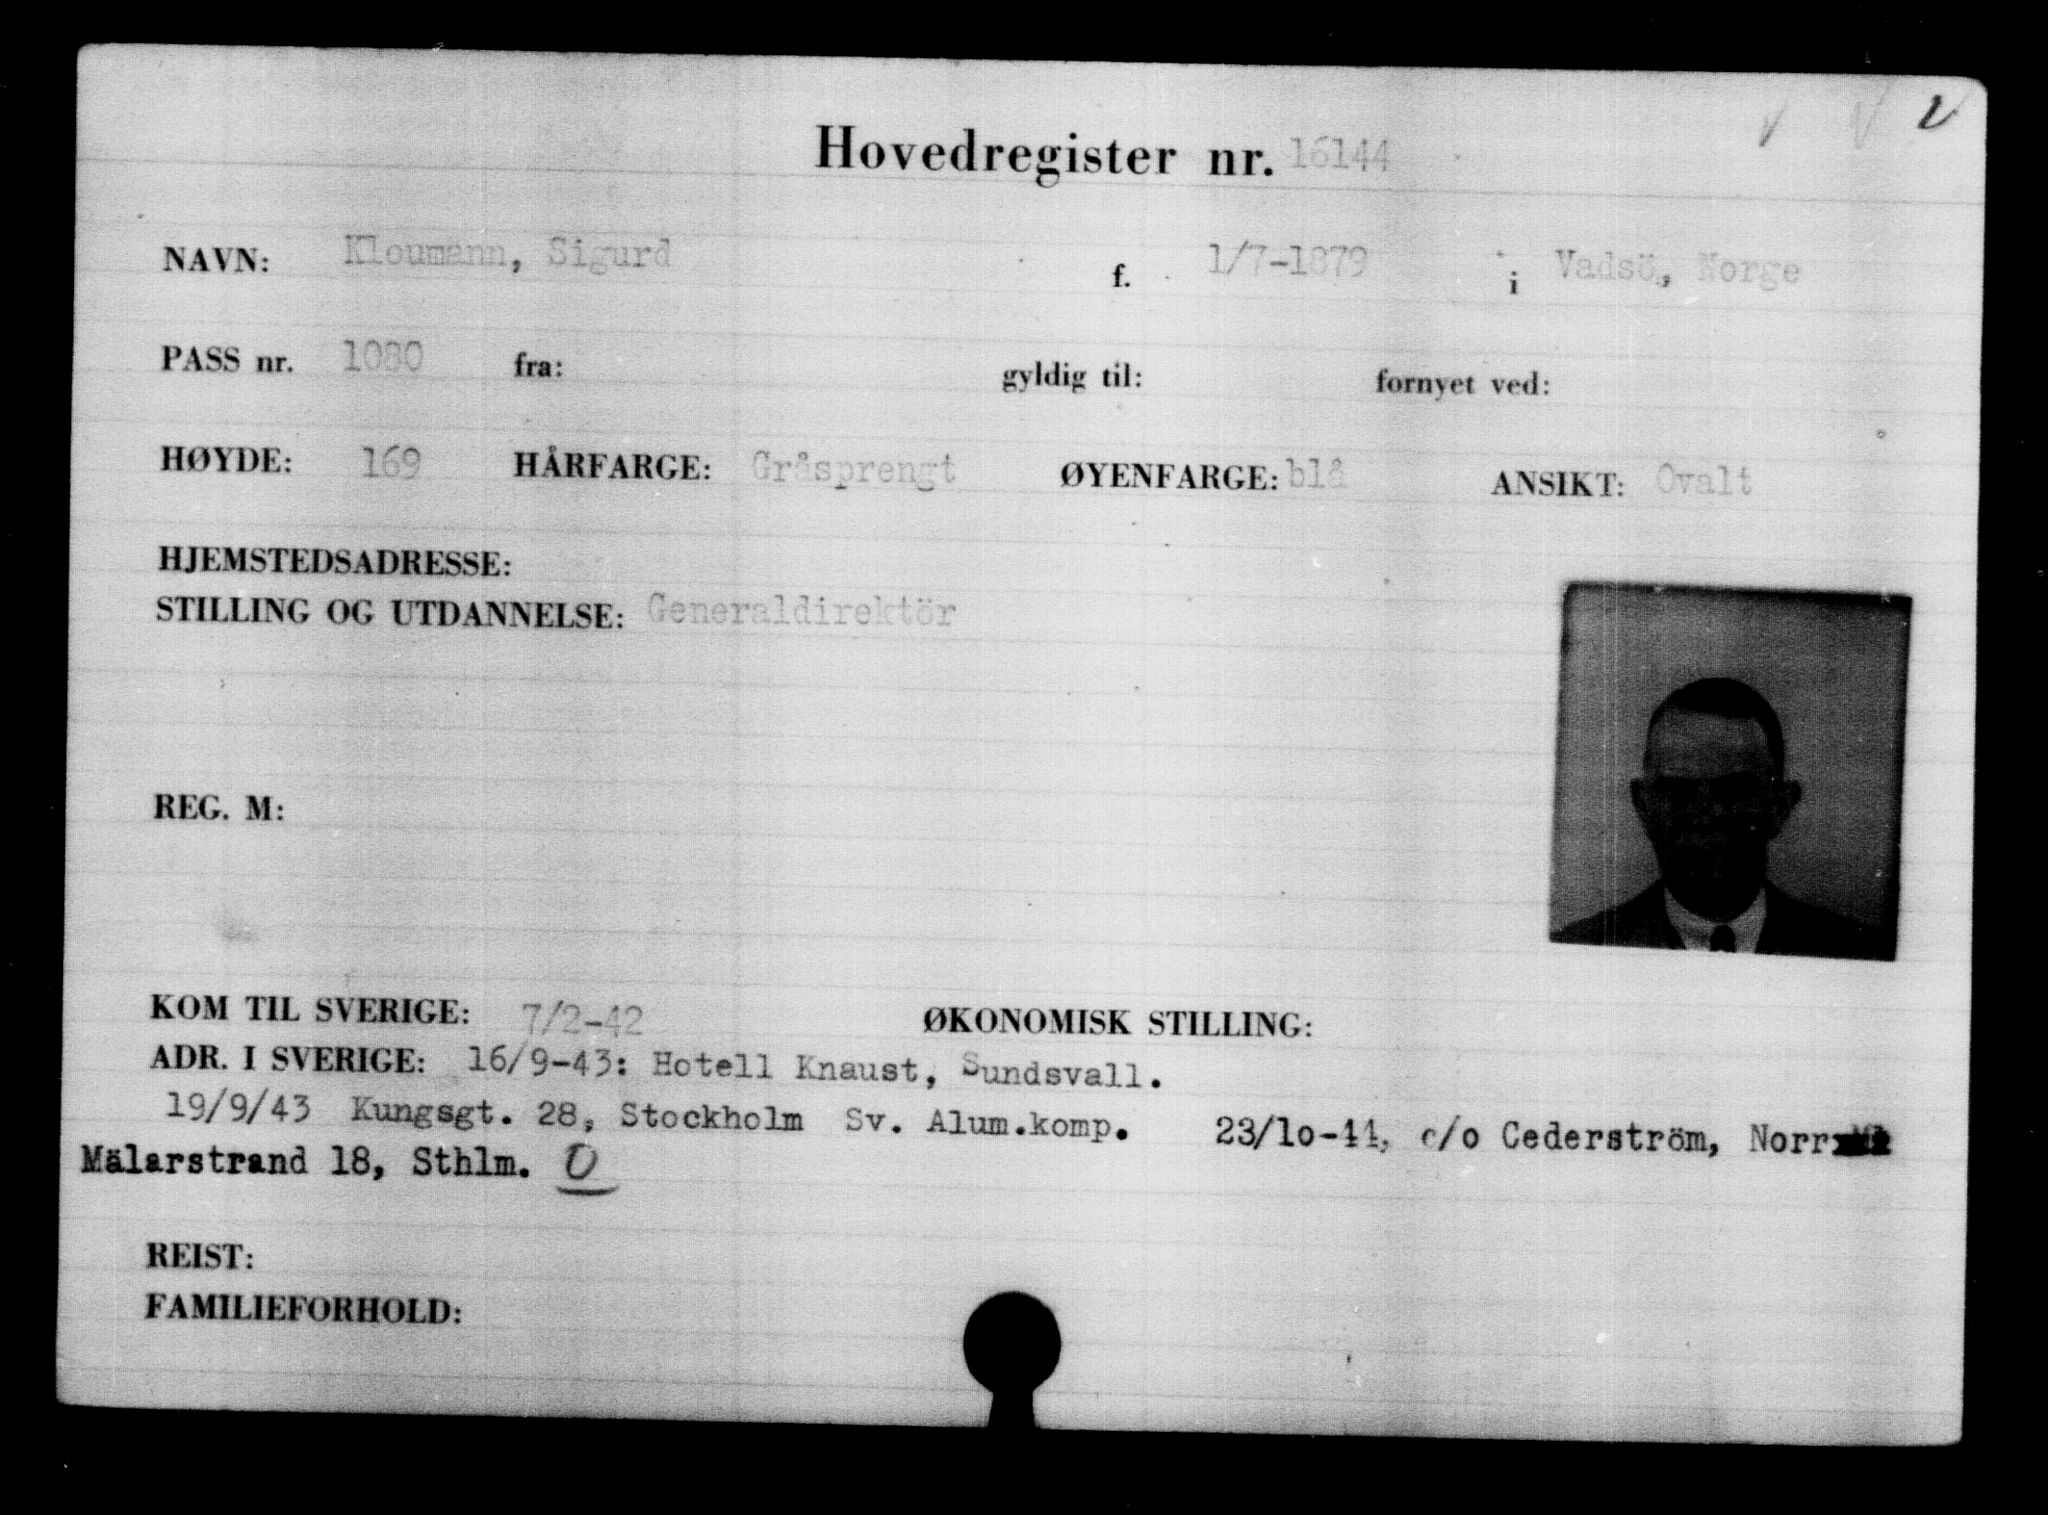 Hovedregister nr. 16144
NAVN: Kloumann, Sigurd f. 1/7-1879 i Vadsö, Norge
PASS nr. 1080 fra: gyldig til: fornyet ved:
HØYDE: 169 HÅRFARGE: Gråsprengt ØYENFARGE: blå ANSIKT: Ovalt
HJEMSTEDSADRESSE:
STILLING OG UTDANNELSE: Generaldirektör
REG. M:
KOM TIL SVERIGE: 7/2-42 ØKONOMISK STILLING:
ADR. I SVERIGE: 16/9-43: Hotell Knaust, Sundsvall.
19/9/43 Kungsgt. 28, Stockholm Sv. Alum.komp. 23/10-44, c/o Cederström, Norr
Mälarstrand 18, Sthlm. O
REIST:
FAMILIEFORHOLD: